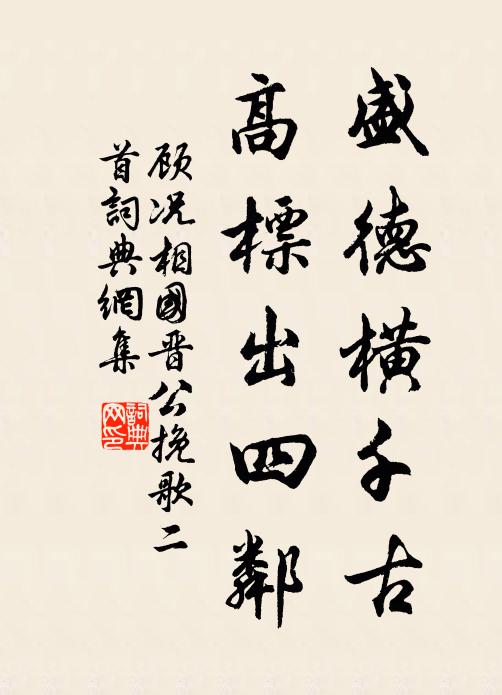 盛德橫千古
高標出四鄰
顾况相國晋公挽歌二
首詞典網集
詞典网印